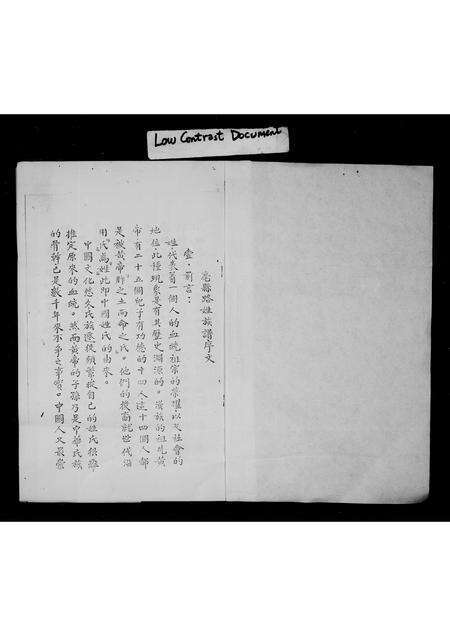 Low Contrast Document
亳縣路姓族譜序文
壹·前言:
姓代表著一個人的血統祖宗的榮耀以及社會的
地位·此種現象是有其歷史淵源的。漢族的祖先黃
帝有二十五個兒子有功德的十四人這十四個人都
是被黃帝胙之土而命之氏。他們的後裔就世代沿
用氏為姓此即中國姓氏的由來。
中國文化悠久民族遷徙頻繁從自己的姓氏很難
推定原來的血統。然而黃帝的子孫乃是中華民族
的骨幹已是數千年來不爭之事實。中國人又最崇